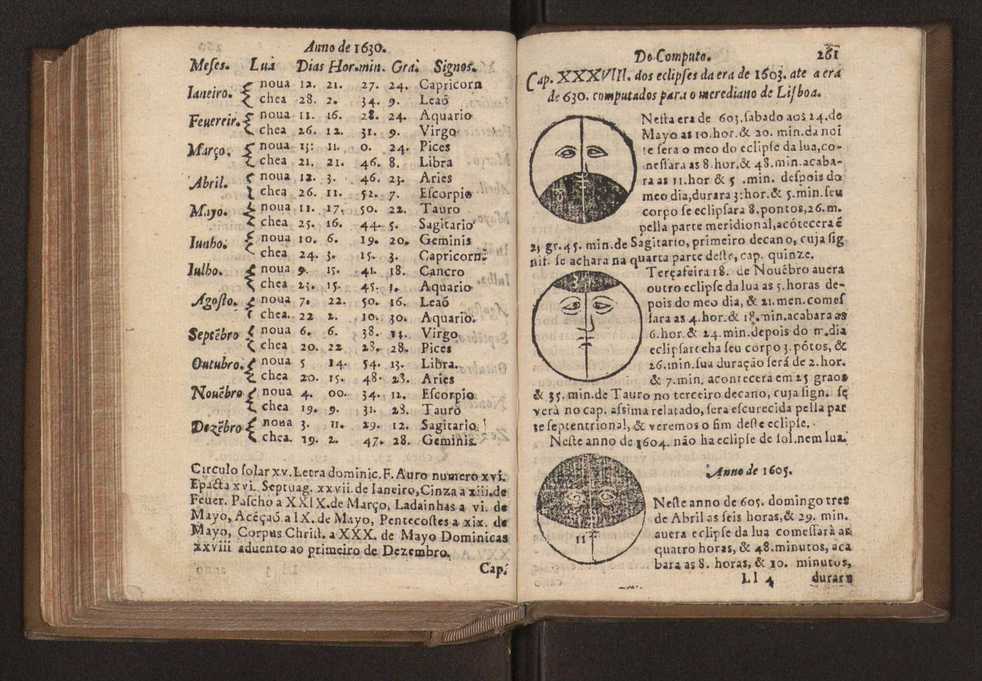 Anno de 1630.
Meses. Lua Dias Hor.min. Gra. Signos.
Ianeiro. noua 12. 21. 27. 24. Capricorn
chea 28. 2. 34. 9. Leaõ
Feuereir. noua 11. 16. 28. 24. Aquario
chea 26. 12. 31. 9. Virgo
Março. noua 13: 11. 0. 24. Pices
chea 21. 21. 46. 8. Libra
Abril. noua 12. 3. 46. 23. Aries
chea 26. 11. 52. 7. Escorpio
Mayo. noua 11. 17. 50. 22. Tauro
chea 25. 16. 44. 5. Sagitario
Iunho. noua 10. 6. 19. 20. Geminis
chea 24. 3. 15. 3. Capricorn.
Iulho. noua 9. 15. 41. 18. Cancro
chea 23. 15. 45. 1. Aquario
Agosto. noua 7. 22. 50. 16. Leaõ
chea. 22 2. 10. 30. Aquario.
Septẽbro noua 6. 6. 38. 13. Virgo
chea 20. 22 28. 28. Pices
Outubro. noua 5 14. 54. 13. Libra.
chea 20. 15. 48. 23. Aries
Nouẽbro noua 4. 00. 34. 12. Escorpio
chea 19. 9. 31. 28. Tauro
Dezẽbro noua 3. 11. 29. 12. Sagitario
chea. 19. 2. 47. 28. Geminis
Circulo solar xv. Letra dominic. F. Auro numero xvi.
Epacta xvi. Septuag. xxvii. de Ianeiro, Cinza a xiii. de
Feuer. Paschoa XXIX. de Março, Ladainhas a vi. de
Mayo, Acẽçaõ a IX. de Mayo, Pentecostes a xix. de
Mayo, Corpus Christ. a XXX. de Mayo Dominicas
xxviii aduento ao primeiro de Dezembro.
Cap.
Do Computo. 261
Cap. XXXVIII. dos eclipses da era de 1603. ate a era
de 630. computados para o merediano de Lisboa.
Nesta era de 603. sabado aos 24. de
Mayo as 10. hor. & 20. min. da noi
te sera o meo do eclipse da lua, co-
nessara as 8. hor. & 48. min. acaba-
ra as 11. hor & 5 .min. despois do
meo dia, durara 3: hor. & 5. min. seu
corpo se eclipsara 8. pontos, 26. m.
pella parte meridional, acõtecera ẽ
23 gr. 45. min. de Sagitario, primeiro decano, cuja sig
nif. se achara na quarta parte deste, cap. quinze.
Terçafeira 18. de Nouẽbro auera
outro eclipse da lua as 5. horas de-
pois do meo dia, & 21. men. comes
sara as 4. hor. & 18. min. acabara as
6. hor. & 24. min. depois do m. dia
eclipsarseha seu corpo 3. põtos, &
26. min. sua duração será de 2. hor.
& 7. min. acontecera em 25 graos
& 35. min. de Tauro no terceiro decano, cuja sign. se
verà no cap. assima relatado, sera escurecida pella par
te septentrional, & veremos o fim deste eclipse.
Neste anno de 1604. não ha eclipse de sol, nem lua.
Anno de 1605.
Neste anno de 605. domingo tres
de Abril as seis horas, & 29. min.
auera eclipse da lua comessarà as
quatro horas, & 48. minutos, aca
bara as 8. horas, & 10. minutos,
11
Ll 4 durara